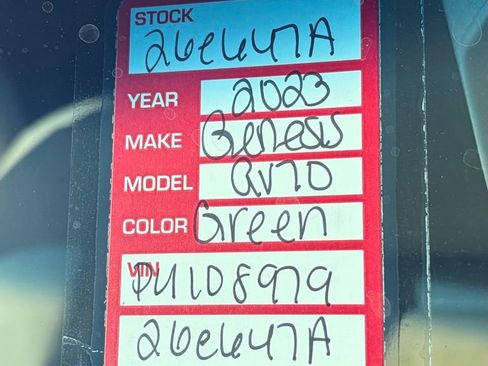 STOCK
26e647A
YEAR 2023
MAKE Genesis
MODEL GV70
COLOR Green
VIN
PU108979
26e647A